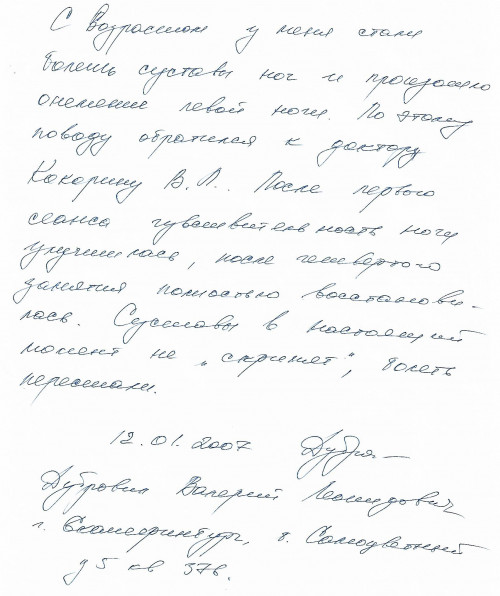 С Возрастом у меня стали
болеть суставы ног и произошло
онемение левой ноги. По этому
поводу обратился к доктору
Кокорину В.Л.. После первого
сеанса чувствительность ноги
улучшилась, после четвертого
занятия полностью восстанови-
лась. Суставы в настоящий
момент не „скрипят“, болеть
перестали.
12.01.2007
Дубровин Валерий Леонидович
г. Екатеринбург, б. Самоцветный
д 5 кв 37б.